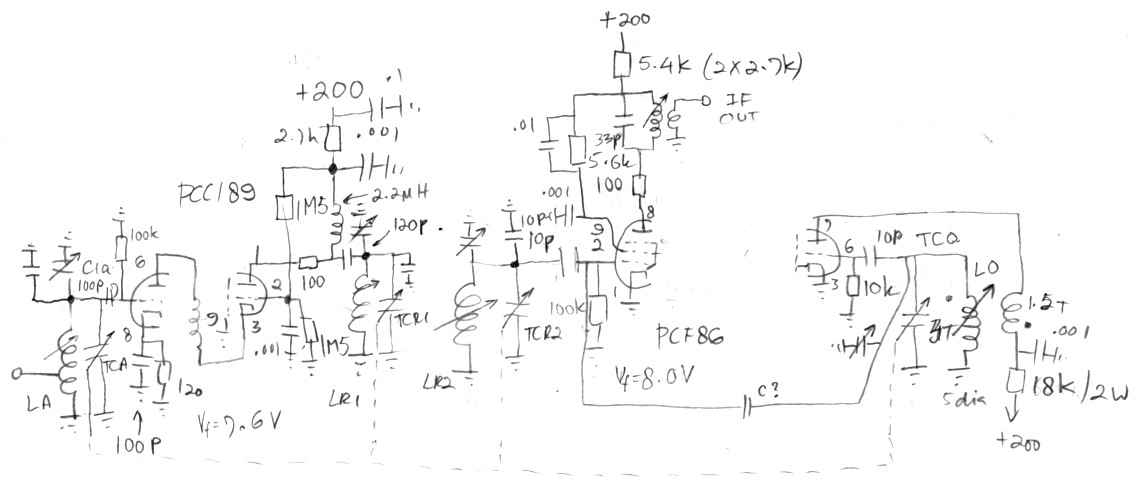 +200
5.4k (2×2.7k)
IF
OUT
+200
.1
.001
2.7k
.01
33p
5.6k
100
8
PCC189
1M5
2.2μH
120p
.001
10p
10p
9
2
1
100k
6
C1a
100p
8
TCA
120
LA
100p
Vf=7.6V
9
3
2
100
.001
1M5
LR1
TCR1
LR2
TCR2
100k
PCF86
Vf=8.0V
C?
7
6
3
10p
TCO
10k
LO
3T
5 dia
1.5T
.001
18k/2W
+200